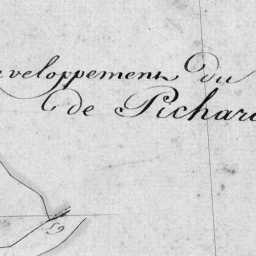 veloppement du
de Pichar
63